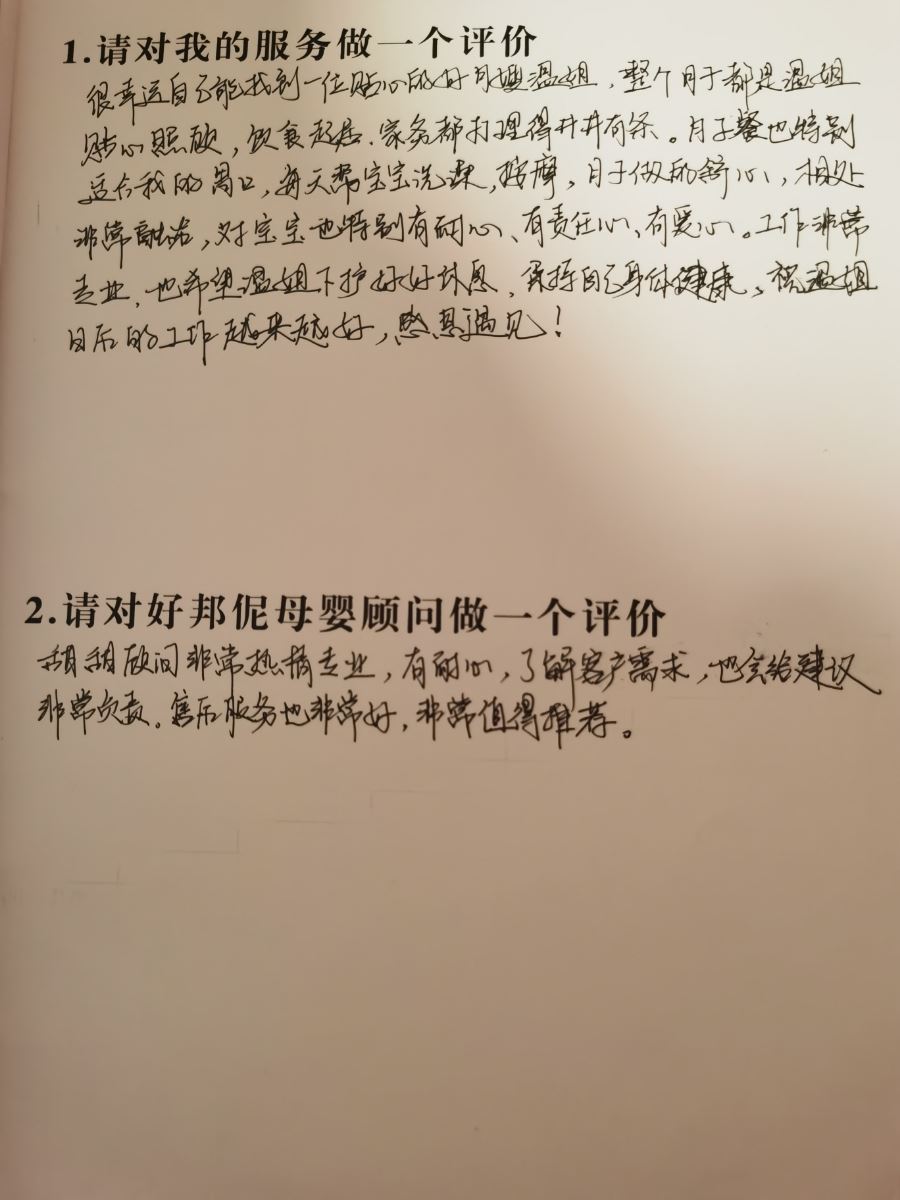 1.请对我的服务做一个评价
很幸运自己能找到一位贴心的好月嫂温姐，整个月子都是温姐
贴心照顾，饮食起居、家务都打理得井井有条。月子餐也特别
适合我的胃口，每天帮宝宝洗澡，按摩，月子做的舒心，相处
非常融洽，对宝宝也特别有耐心、有责任心、有爱心。工作非常
专业，也希望温姐下护好好休息，保持自己身体健康，祝温姐
日后的工作越来越好，感恩遇见！
2.请对好邦伲母婴顾问做一个评价
甜甜顾问非常热情专业，有耐心，了解客户需求，也会给建议
非常负责。售后服务也非常好，非常值得推荐。